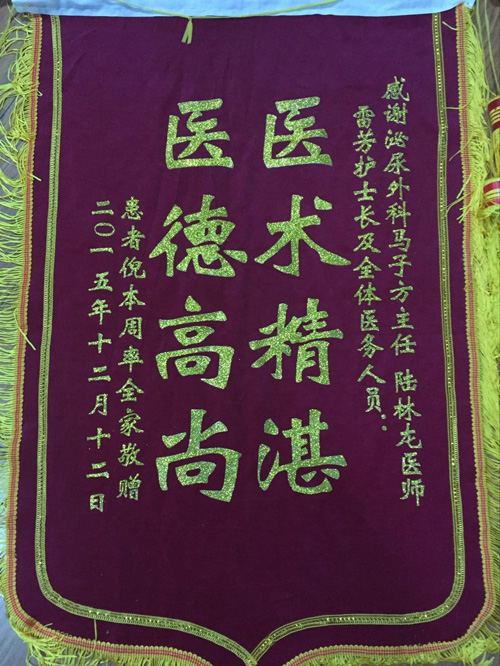 感谢泌尿外科马子方主任 陆林龙医师
雷芳护士长及全体医务人员：
医术精湛
医德高尚
患者倪本周率全家敬赠
二〇一五年十二月十二日